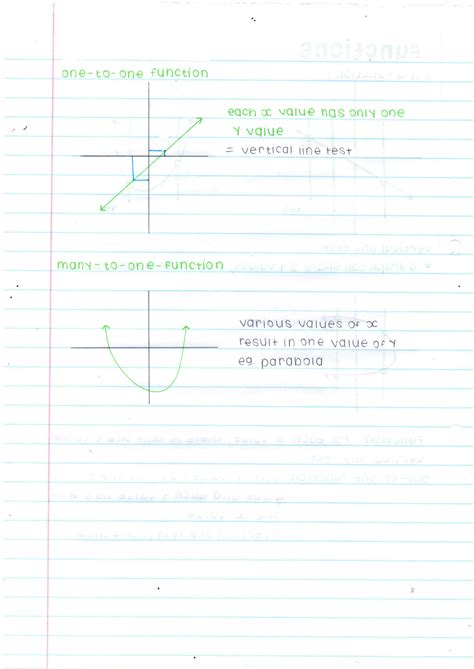 one-to-one function
each x value has only one
y value
= vertical line test
many-to-one-function
various values of x
result in one value of y
eg. parabola